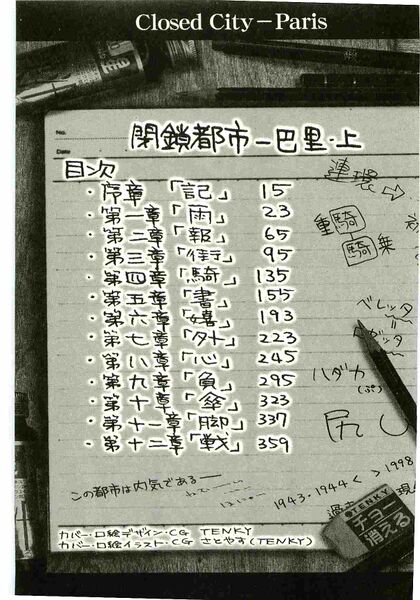 Closed City－Paris
No.
Date
閉鎖都市－巴里・上
目次
・序章 「記」 15
・第一章 「雨」 23
・第二章 「報」 65
・第三章 「街」 95
・第四章 「騎」 135
・第五章 「書」 155
・第六章 「嬉」 193
・第七章 「外」 223
・第八章 「心」 245
・第九章 「負」 295
・第十章 「傘」 323
・第十一章 「脚」 337
・第十二章 「戦」 359
連環⇨
重騎
騎乗
ベレッタ
ハダカ
(ぷ)
尻し
この都市は内気である――
1943・1944く 〉1998
TENKY
チョー
消える
カバー・口絵デザイン・CG TENKY
カバー・口絵イラスト・CG さとやす(TENKY)